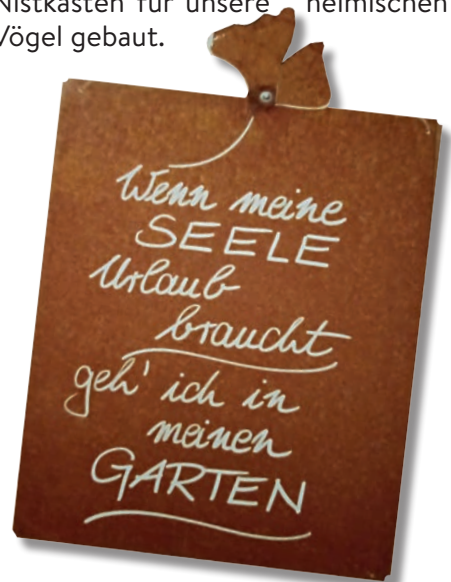 Nistkästen für unsere heimischen
Vögel gebaut.
Wenn meine
SEELE
Urlaub
braucht
geh' ich in
meinen
GARTEN